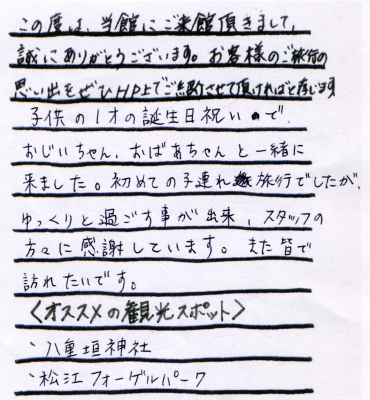 この度は、当館にご来館頂きまして、
誠にありがとうございます。お客様のご旅行の
思い出をぜひHP上でご紹介させて頂ければと存じます
子供の1才の誕生日祝いので、
おじいちゃん、おばあちゃんと一緒に
来ました。初めての子連れ旅行でしたが、
ゆっくりと過ごす事が出来、スタッフの
方々に感謝しています。また皆で
訪れたいです。
〈オススメの観光スポット〉
・八重垣神社
・松江フォーゲルパーク